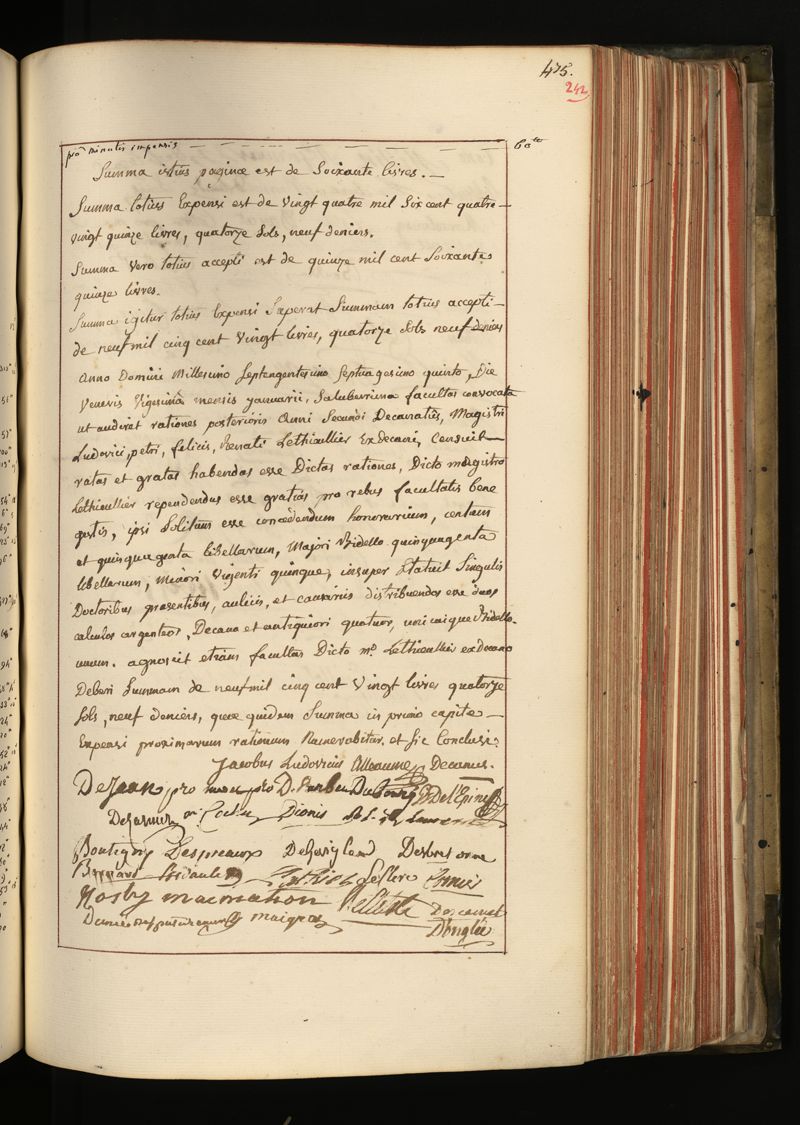 475.
242
pro minutis impensis — — — — — — 60
Summa istius paginæ est de Soixante livres. —
Summa totius Expensi est de Vingt quatre mil Six cent quatre-
vingt quinze livres, quatorze Sols, neuf deniers.
Summa vero totius accepti est de quinze mil cent Soixante
quinze livres.
Summa igitur totius Expensi Superat Summam totius accepti —
de neuf mil cinq cent Vingt livres, quatorze Sols neuf deniers
Anno Domini Millesimo Septengentesimo Septuagesimo quinto, Die
Veneris Vigesima mensis januarii, Saluberrima facultas convocata
ut audiret rationes posterioris Anni Secundi Decanatûs, Magistri
Ludovici, petri, felicis, Renati Lethieullier Exdecani, Censuit
ratas et gratas habendas esse Dictas rationes, Dicto magistro
Lethieullier rependendas esse gratias pro rebus facultatis bene
gestis, ipsi Solitum esse concedendum honorarium, centum
et quinquaginta libellarum, Majori Bidello quinquagenta
libellarum, minori Vigenti quinque, insuper Statuit Singulis
Doctoribus præsentibus, aulicis, et causariis distribuendos esse duos
calculos argenteos, Decano et antiquiori quatuor, unicuique Bidello
unum. agnovit etiam facultas Dicto mo. Lethieullier exdecano
Deberi Summam de neuf mil cinq cent Vingt livres quatorze
Sols, neuf deniers, quæ quidem Summa in primo capite —
Expensi proximarum rationum Numerabitur. et Sic Conclusi.
Jacobus Ludovicus Alleaume Decanus.
DeJean pro pro D. Dubourg De l'Epine
Dionis
Boutigny Despreaux
Bernard Leclerc
Nosby macmahon
maigret
D'onglée